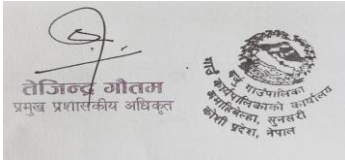 तेजिन्द्र गौतम
प्रमुख प्रशासकीय अधिकृत
बर्जु गाउँपालिका
गाउँ कार्यपालिकाको कार्यालय
सुनसरी
कोशी प्रदेश, नेपाल